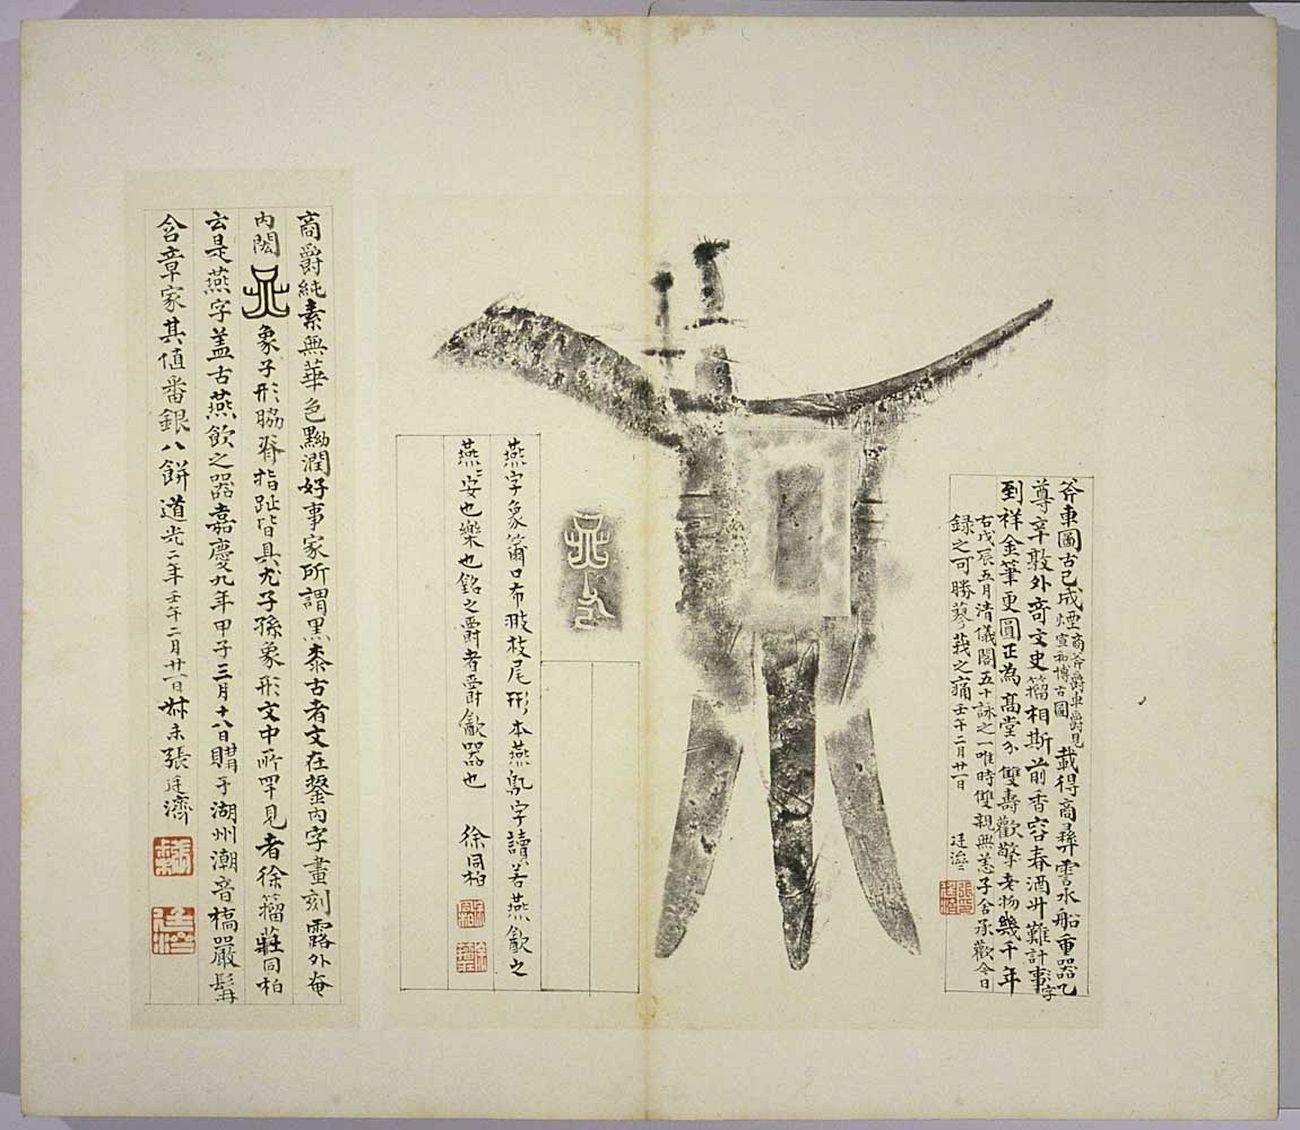 斧車圖古已成煙商斧爵車爵見宣和博古圖載得商彝雪水船重器乙
尊辛敦外奇文史籀相斯前香容春酒廾難計事字
到祥金筆更圓正為髙堂介雙壽歡擎老物幾千年
古戊辰五月清儀閣五十詠之一唯時雙親無恙子舍承歡今日
録之可勝蓼莪之痛壬午二月廿一日 廷濟
燕字象籋口布翄枝尾形本燕鳦字讀若燕飲之
燕燕安也樂也銘之爵者爵飲器也 徐同柏
商爵純素無華色黝潤好事家所謂黑漆古者文在鋬内字畫刻露外奄
内閎 象子形脇脊指趾皆具尤子孫象形文中所罕見者徐籀莊同柏
云是燕字蓋古燕飲之器嘉慶九年甲子三月十八日購于湖州潮音橋嚴髯
含章家其值番銀八餅道光二年壬午二月廿一日叔未張廷濟